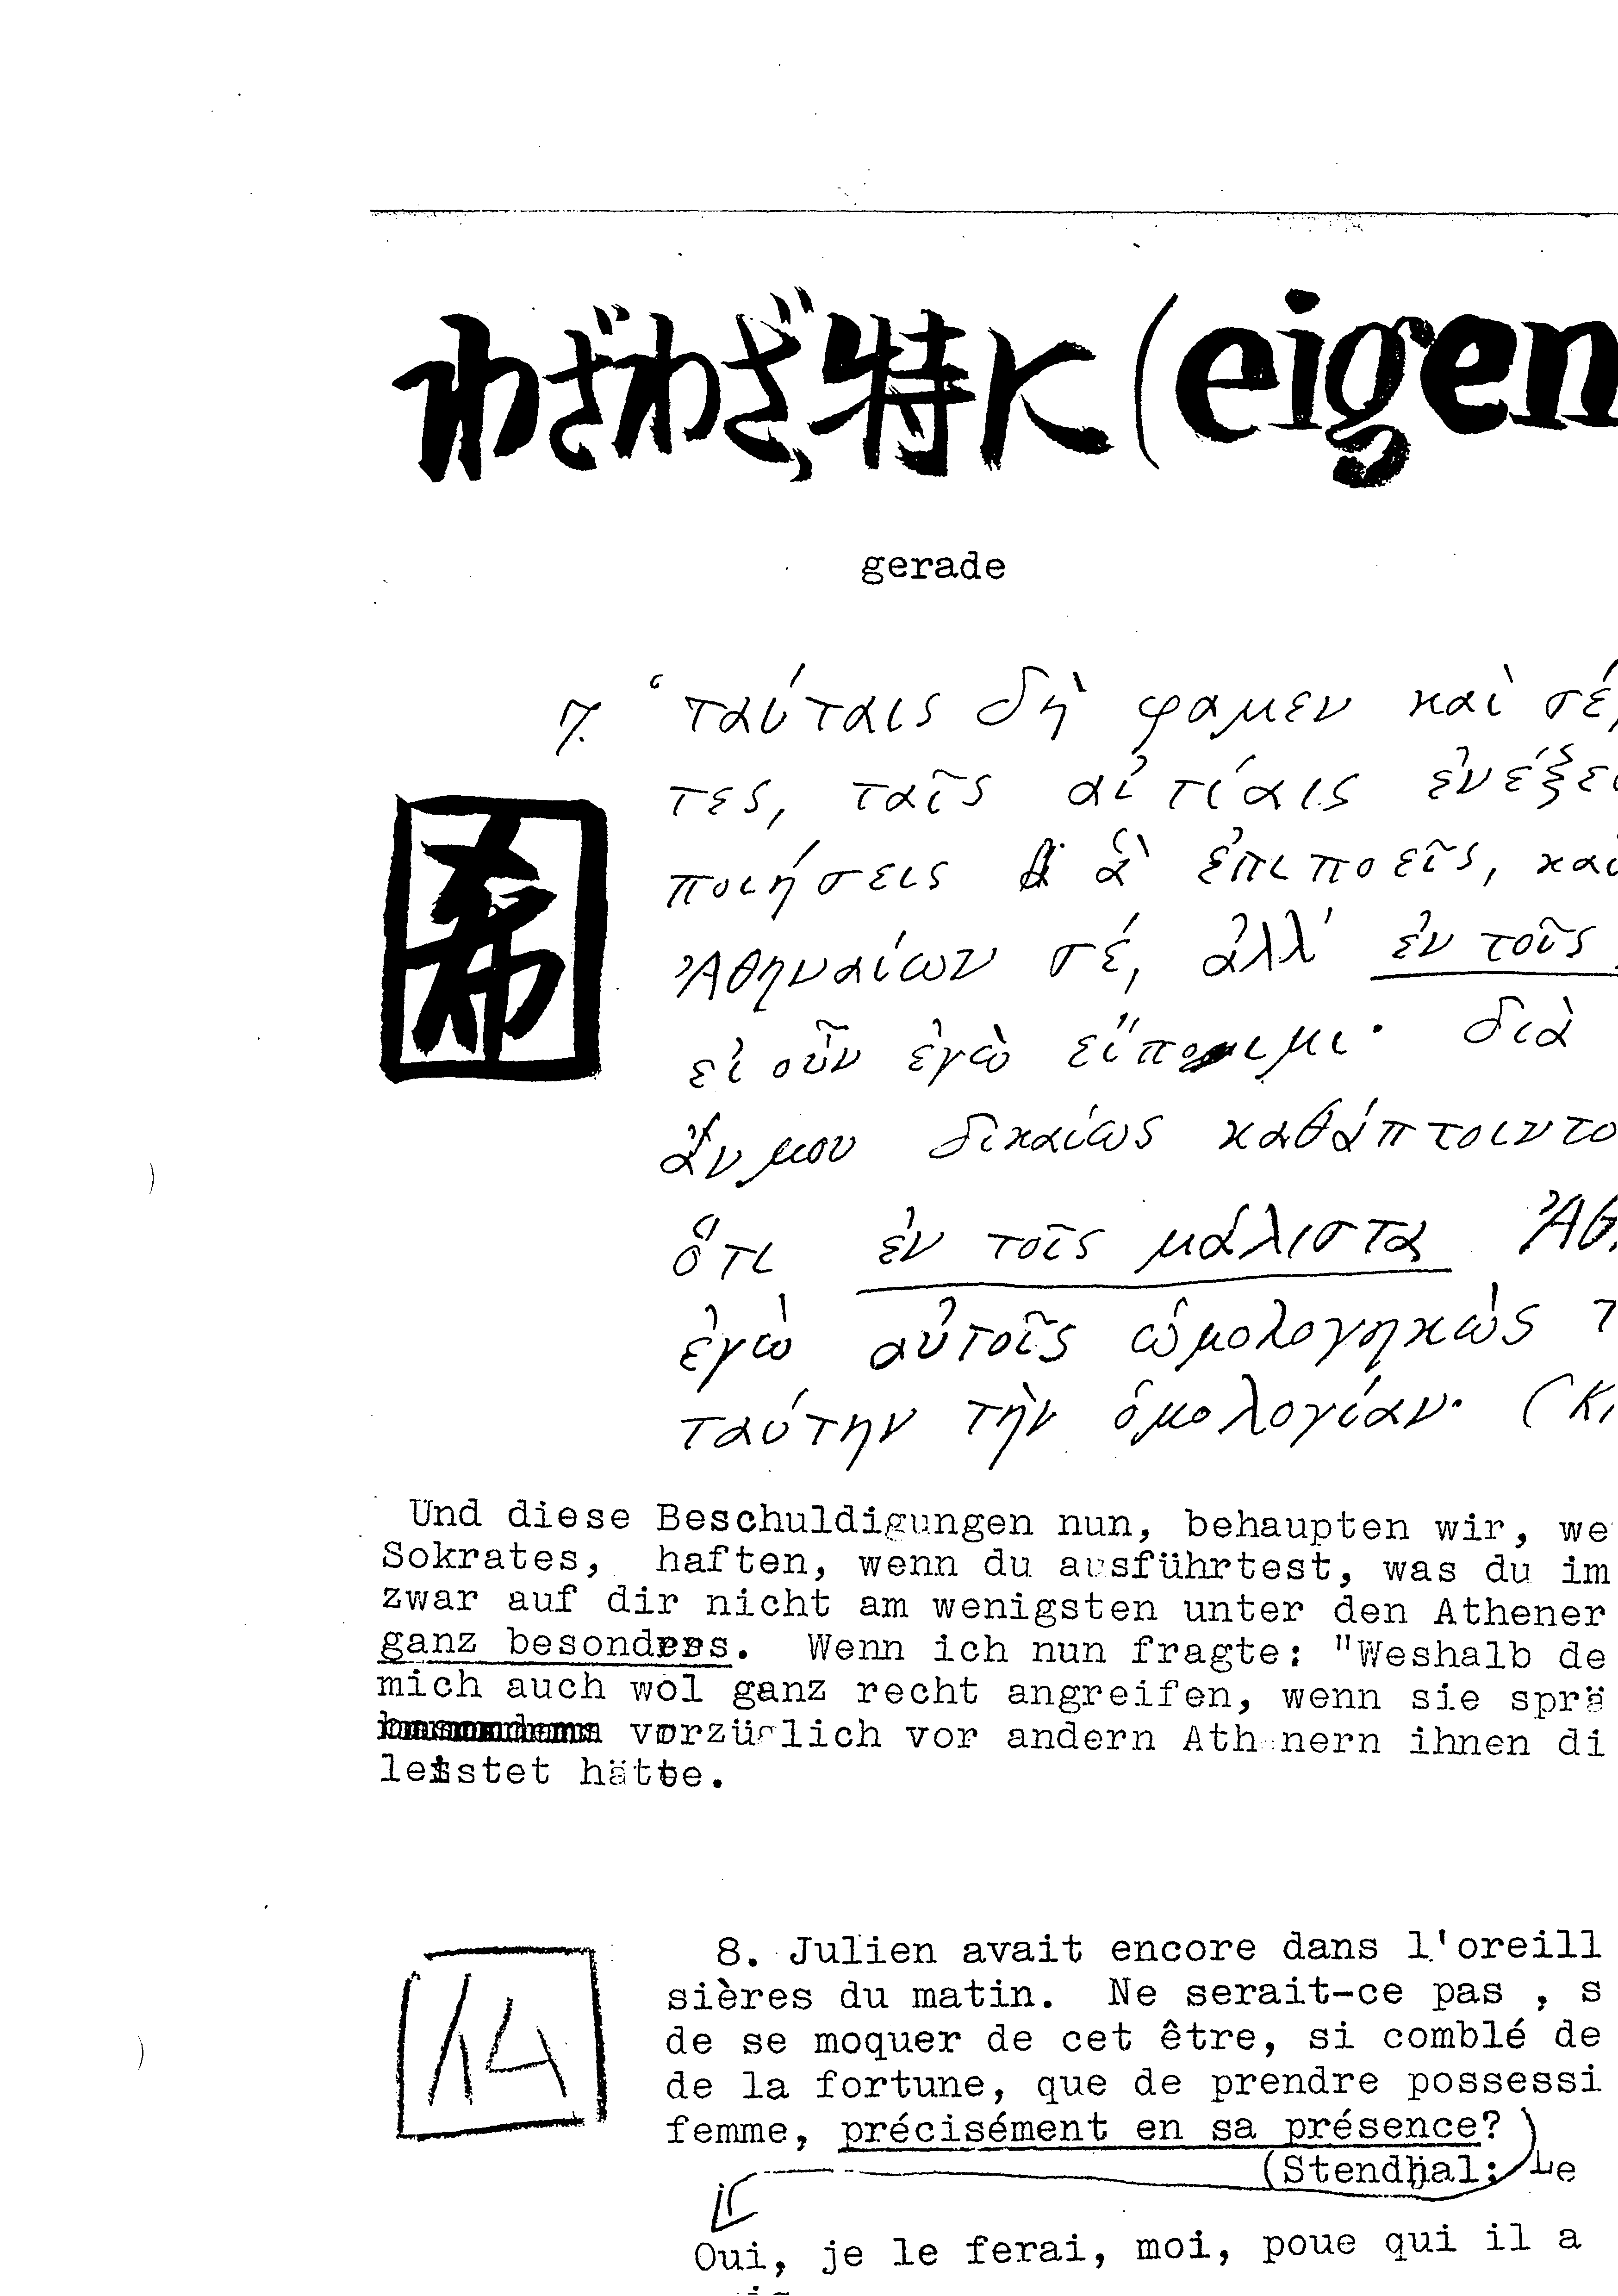 わざわざ、特に(eigen
gerade
7. ‘ταύταις δὴ φαμεν καὶ σέ,
τες, ταῖς αἰτίαις ἐνέξεσ
ποιήσεις ἃ ἐπιποεῖς, καὶ
Ἀθηναίων σέ, ἀλλ' ἐν τοῖς
希
εἰ οὖν ἐγὼ εἴποιμι· διὰ
ἄν μου δικαίως καθάπτοιντο
ὅτι ἐν τοῖς μάλιστα Ἀθ
ἐγὼ αὐτοῖς ὡμολογηκὼς τ
ταύτην τὴν ὁμολογίαν· (Κρ
Und diese Beschuldigungen nun, behaupten wir, we
Sokrates, haften, wenn du ausführtest, was du im
zwar auf dir nicht am wenigsten unter den Athener
ganz besonders. Wenn ich nun fragte: "Weshalb de
mich auch wol ganz recht angreifen, wenn sie sprä
vorzüglich vor andern Athenern ihnen di
leistet hätte.
8. Julien avait encore dans l'oreill
sières du matin. Ne serait-ce pas , s
de se moquer de cet être, si comblé de
仏
de la fortune, que de prendre possessi
femme, précisément en sa présence?
(Stendhal: Le
Oui, je le ferai, moi, poue qui il a